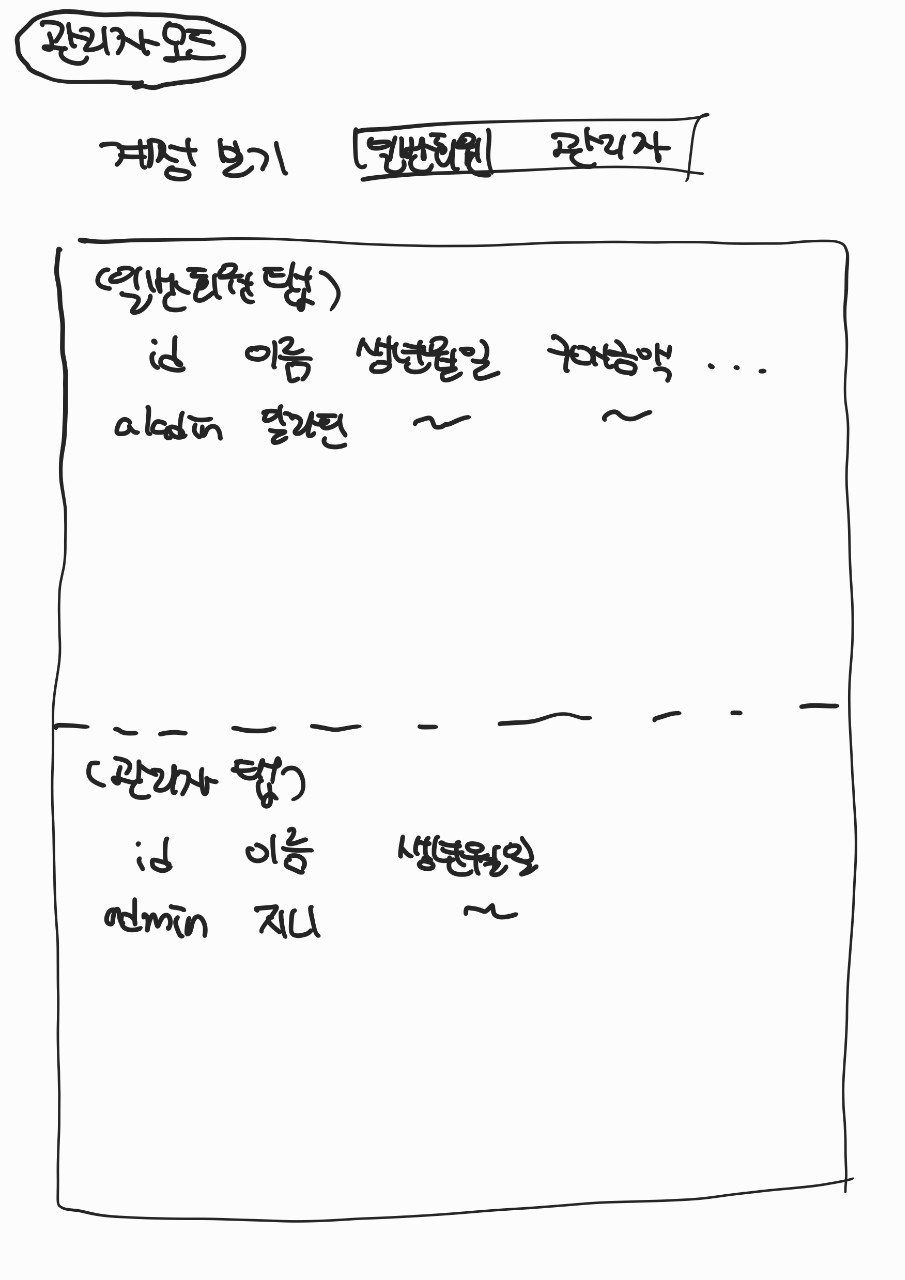 관리자 모드
계정 보기 일반회원 관리자
(일반회원 탭)
id 이름 생년월일 구매금액 ...
aladin 알라딘 ~ ~
(관리자 탭)
id 이름 생년월일
admin 지니 ~